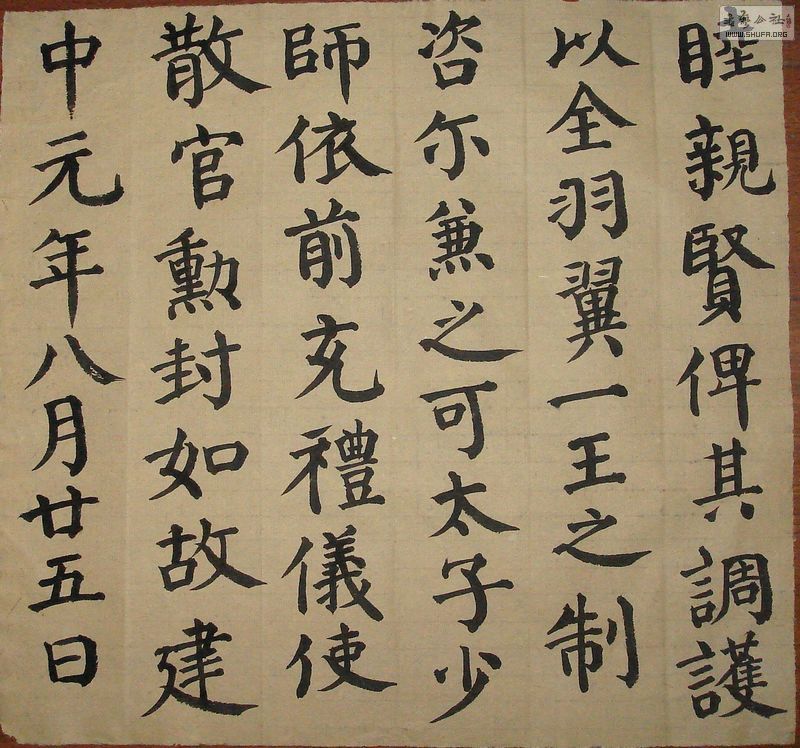 睦親賢俾其調護
以全羽翼一王之制
咨尓兼之可太子少
師依前充禮儀使
散官勳封如故建
中元年八月廿五日
WWW.SHUFA.ORG